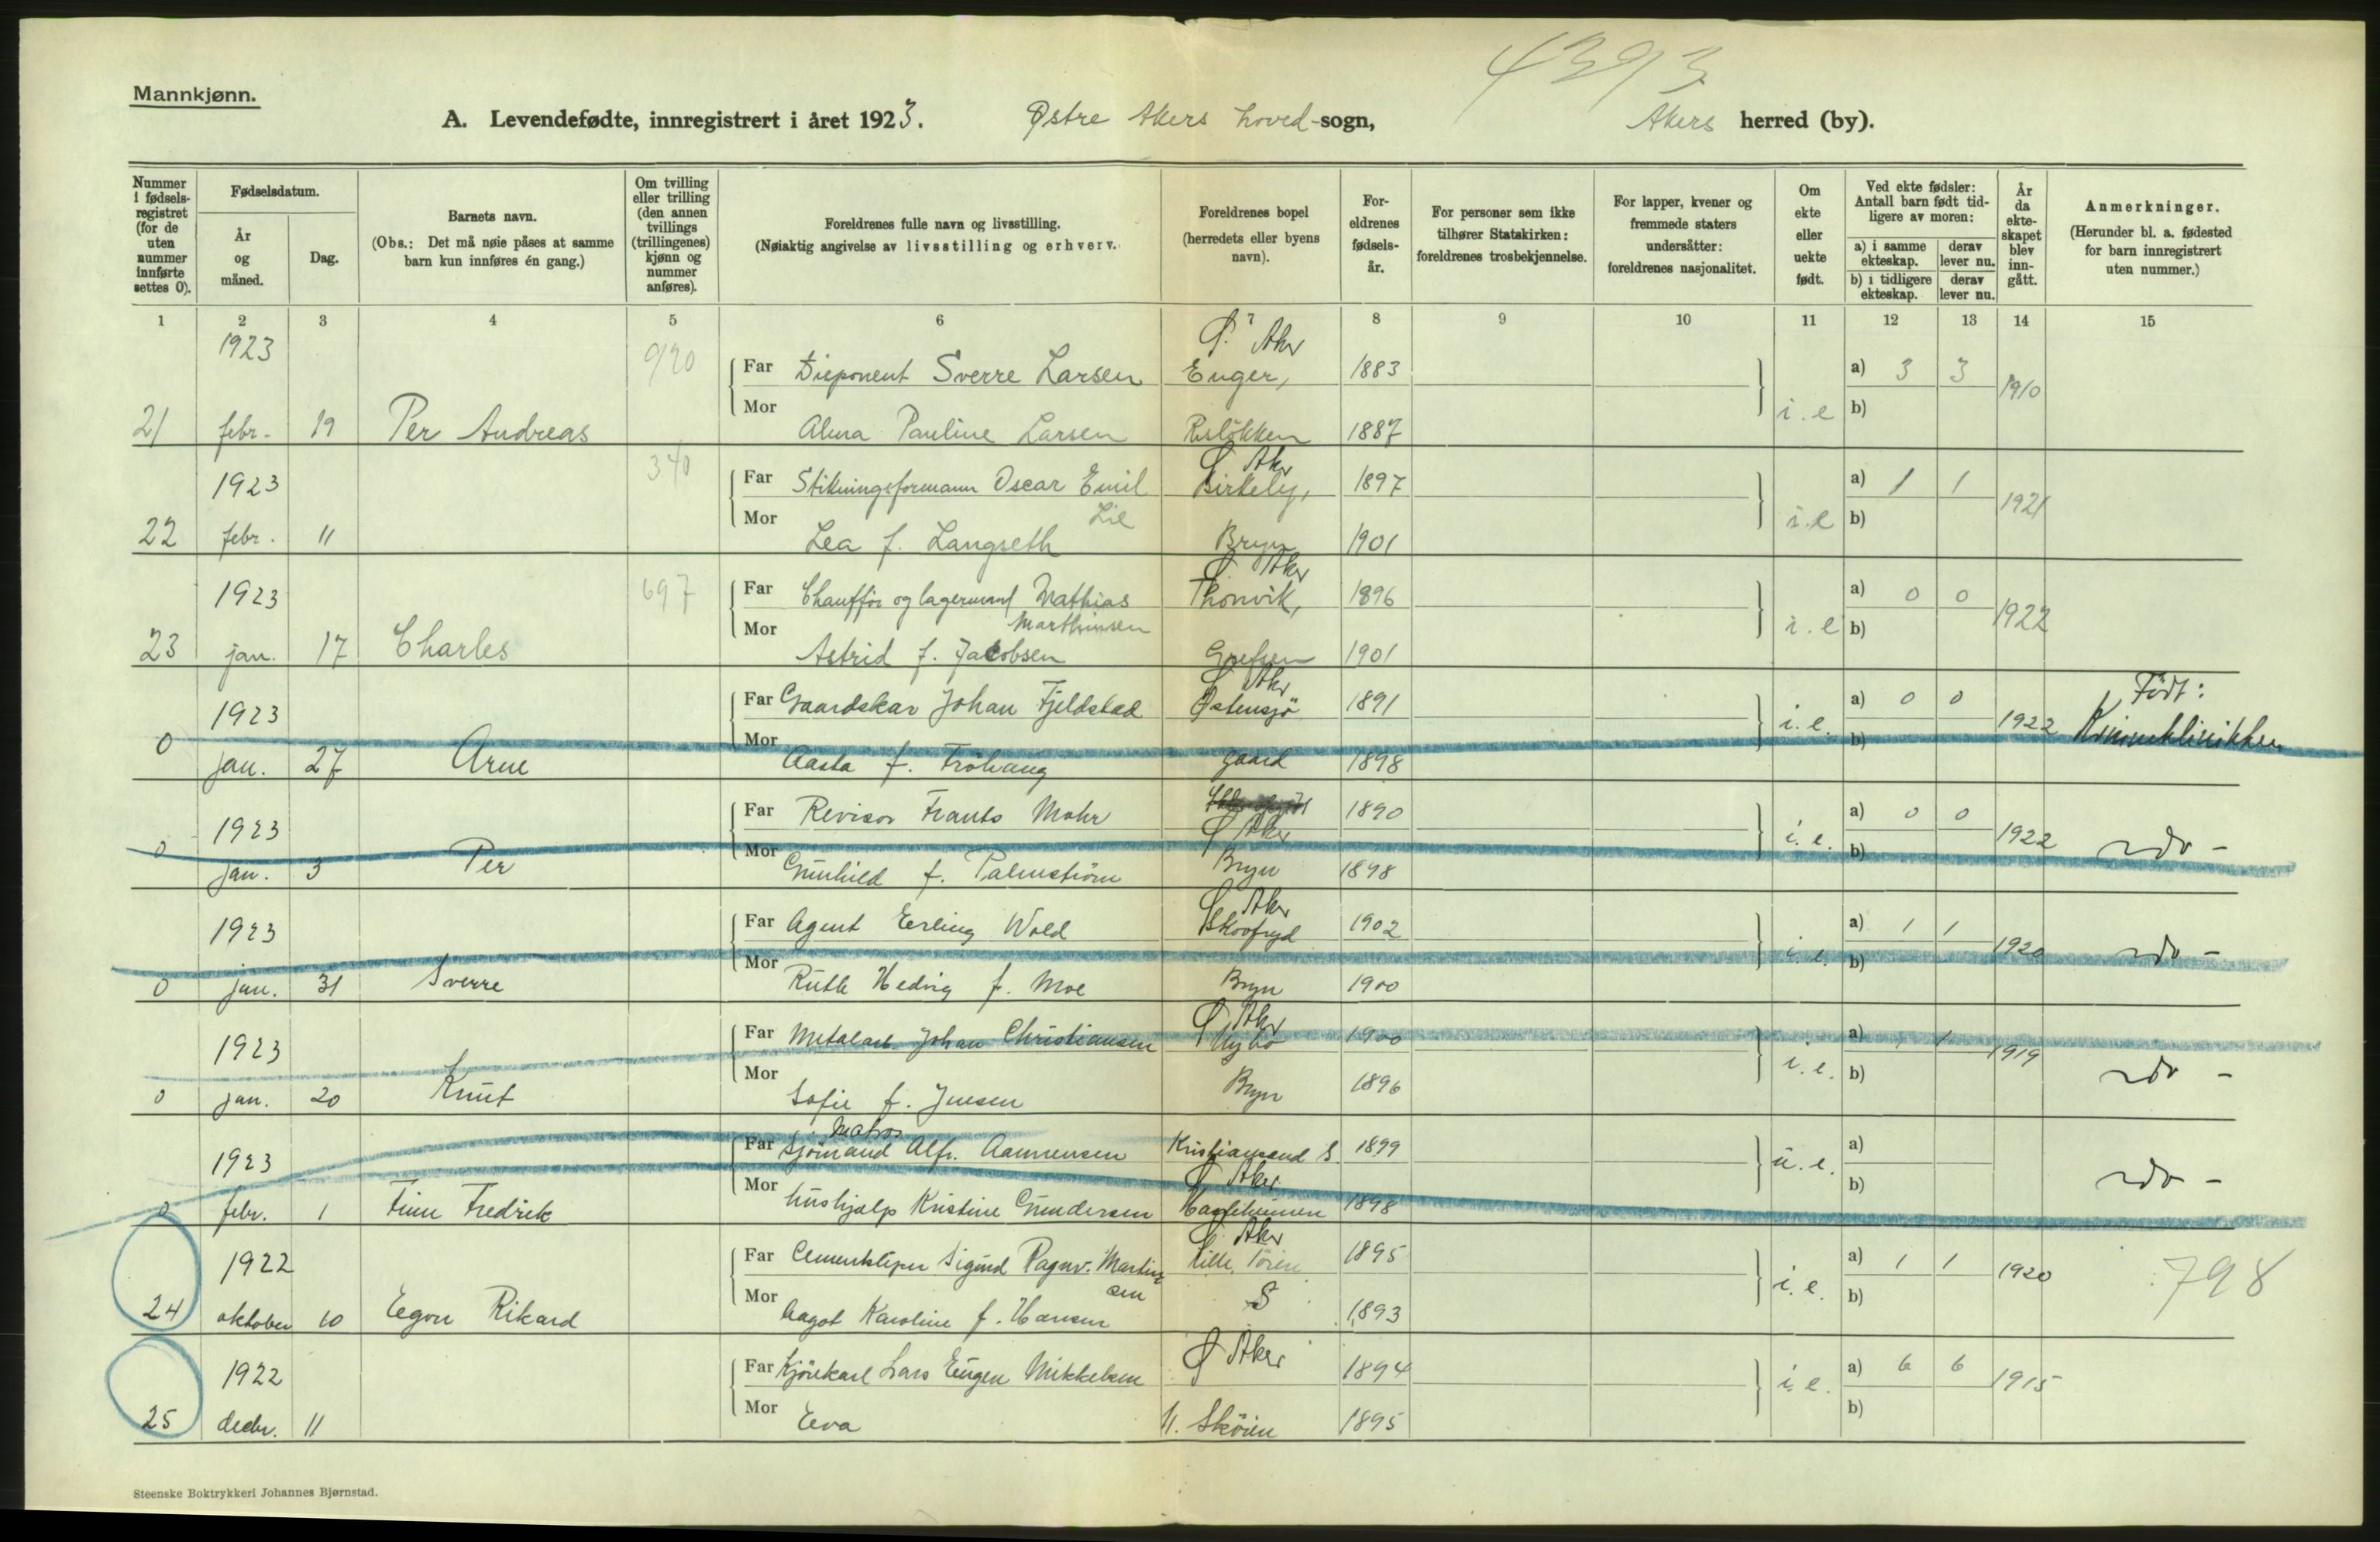 4393
Mannkjønn.
A. Levendefødte, innregistrert i året 1923. Østre Akers hoved-sogn, Akers herred (by).
Nummer i fødsels-registret (for de uten nummer innførte settes 0).
Fødselsdatum.
År og måned.
Dag.
Barnets navn.
(Obs.: Det må nøie påses at samme barn kun innføres én gang.)
Om tvilling eller trilling (den annen tvillings (trillingenes) kjønn og nummer anføres).
Foreldrenes fulle navn og livsstilling.
(Nøiaktig angivelse av livsstilling og erhverv.)
Foreldrenes bopel (herredets eller byens navn).
For-eldrenes fødsels-år.
For personer som ikke tilhører Statskirken: foreldrenes trosbekjennelse.
For lapper, kvener og fremmede staters undersåtter: foreldrenes nasjonalitet.
Om ekte eller uekte født.
Ved ekte fødsler: Antall barn født tid-ligere av moren:
a) i samme ekteskap. derav lever nu.
b) i tidligere ekteskap. derav lever nu.
År da ekte-skapet blev inn-gått.
Anmerkninger.
(Herunder bl. a. fødested for barn innregistrert uten nummer.)
1 2 3 4 5 6 7 8 9 10 11 12 13 14 15
1923 Ø. Aker
Far Disponent Sverre Larsen Enger, 1883 a) 3 3 1910
Mor i.e b)
21 febr. 19 Per Andreas Alma Pauline Larsen Risløkken 1887
340 Ø Aker
1923 Far Stikningsformann Oscar Emil Birkely, 1897 a) 1 1 1921
Mor Lie i.e b)
22 febr. 11 Lea f. Langseth Bryn 1901
Ø Aker
1923 697 Far Chaufför og lagermand Mathias Thonvik, 1896 a) 0 0 1922
Mor Marthinsen i.e b)
23 jan. 17 Charles Astrid f. Jacobsen Grefsen 1901
Ø Aker Födt:
1923 Far Gaardskar Johan Fjeldstad Østensjö 1891 i.e. a) 0 0 1922 Kvinneklinikken
0 Mor b)
jan. 27 Arne Aasta f. Fröhaug gaard 1898
1923 Far Revisor Frants Mohr Ø Aker 1890 i.e. a) 0 0 1922 do -
0 Mor b)
jan. 3 Per Gunhild f. Palmström Bryn 1898
Ø Aker
1923 Far Agent Erling Wold Skovfryd 1902 i.e. a) 1 1 1920 do -
Mor b)
0 jan. 31 Sverre Ruth Hedvig f. Moe Bryn 1900
Ø Aker
1923 Far Metalarb. Johan Christiansen Nybo 1900 a) 1 1 1919
Mor i.e. b) do -
0 jan. 20 Knut Sofie f. Jensen Bryn 1896
Matros
1923 Far Sjömand Alfr. Aanensen Kristiansand S. 1899 u.e. a)
Mor Ø Aker b) do -
0 febr. 1 Finn Fredrik hushjælp Kristine Gundersen 1898
Ø Aker
1922 Far Cementstöper Sigurd Ragnv. Martin Lille 1895 a) 1 1 1920 798
Mor sen i.e. b)
24 oktober 10 Egon Rikard Aagot Karoline f. Hansen S 1893
1922 Far Kjörekarl Lars Eugen Mikkelsen Ø Aker 1894 i.e. a) 6 6 1915
Mor b)
25 decbr. 11 Eva N. Sköien 1895
Steenske Boktrykkeri Johannes Bjørnstad.